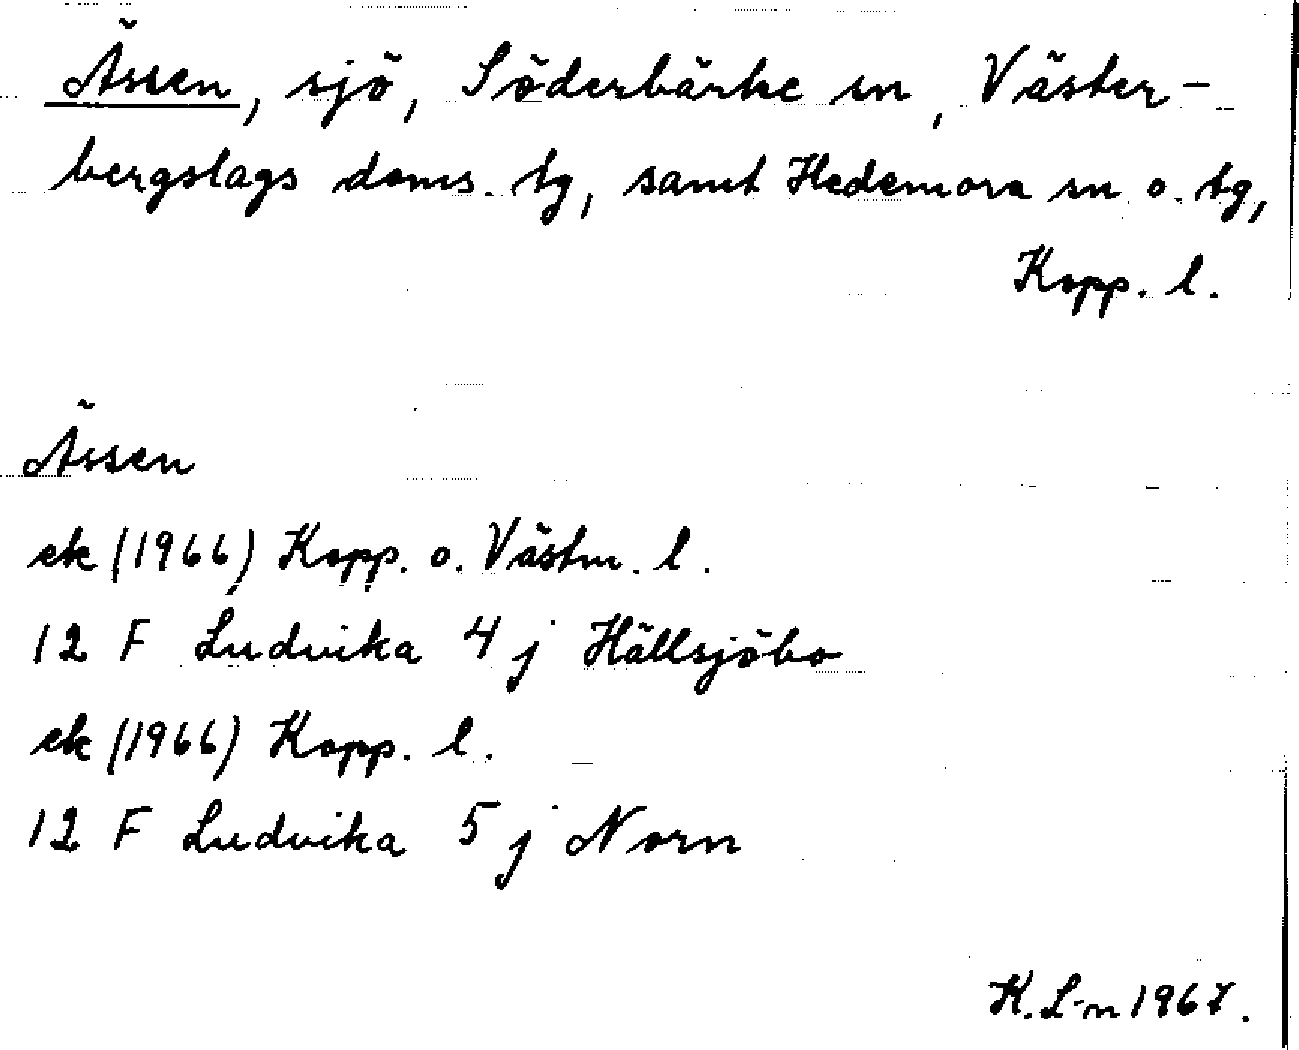 Ässen, sjö, Söderbärke sn, Väster-
bergslags doms. tg, samt Hedemora sn o. tg,
Kopp. l.
Ässen
ek (1966) Kopp. o. Västm. l.
12 F Ludvika 4 j Hällsjöbo
ek (1966) Kopp. l.
12 F Ludvika 5 j Norn
K. L-n 1967.